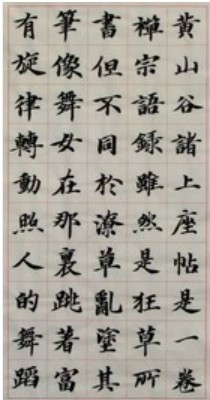 黃山谷諸上座帖是一卷
禪宗語錄雖然是狂草所
書但不同於潦草亂塗其
筆像舞女在那裏跳著富
有旋律轉動照人的舞蹈